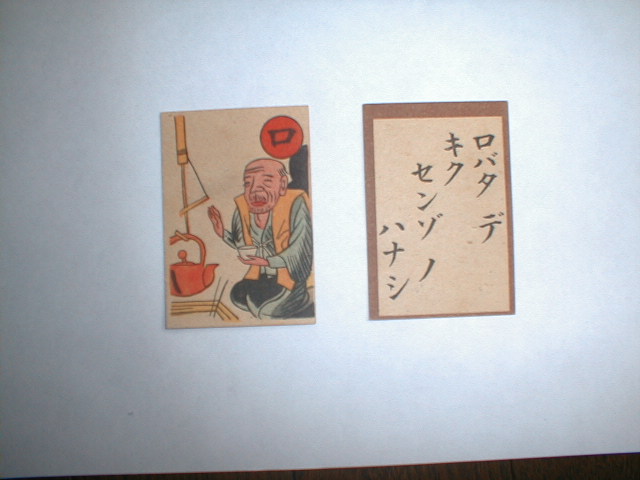 ロ
ロバタ デ
キク
センゾ ノ
ハナシ